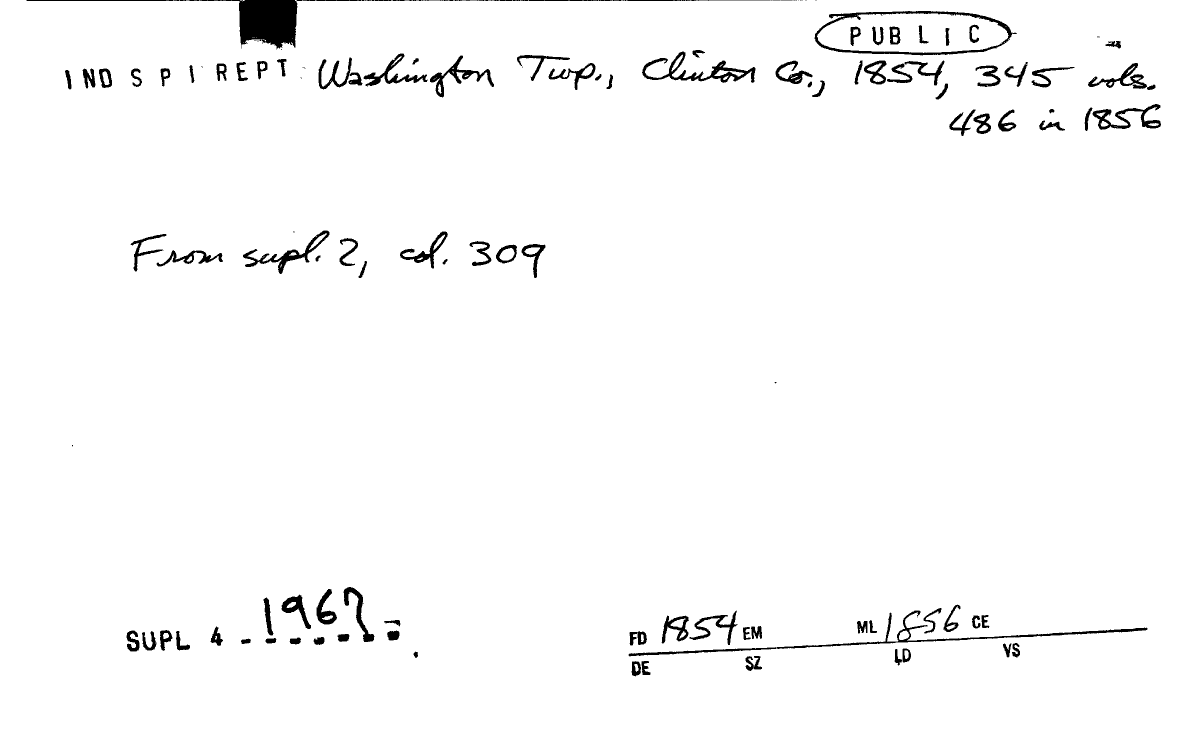 PUBLIC
IND SPI REPT Washington Twp., Clinton Co., 1854, 345 vols.
486 in 1856
From supl. 2, col. 309
SUPL 4 - 1967
FD 1854 EM ML 1856 CE
DE SZ LD VS